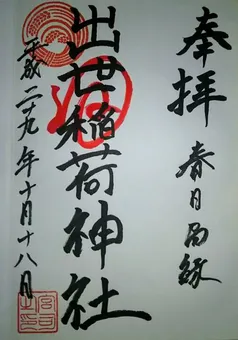 奉拝
春日局縁
出世稲荷神社
平成二十九年十月十八日